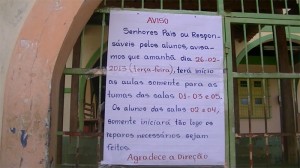 AVISO
Senhores Pais ou Respon-
sáveis pelos alunos, avisa-
mos que amanhã dia 26-02-
2013 (terça-feira), terá início
as aulas somente para as
turmas das salas 01-03 e 05.
Os alunos das salas 02 e 04,
somente iniciará tão logo os
reparos necessários sejam
feitos.
Agradece a Direção